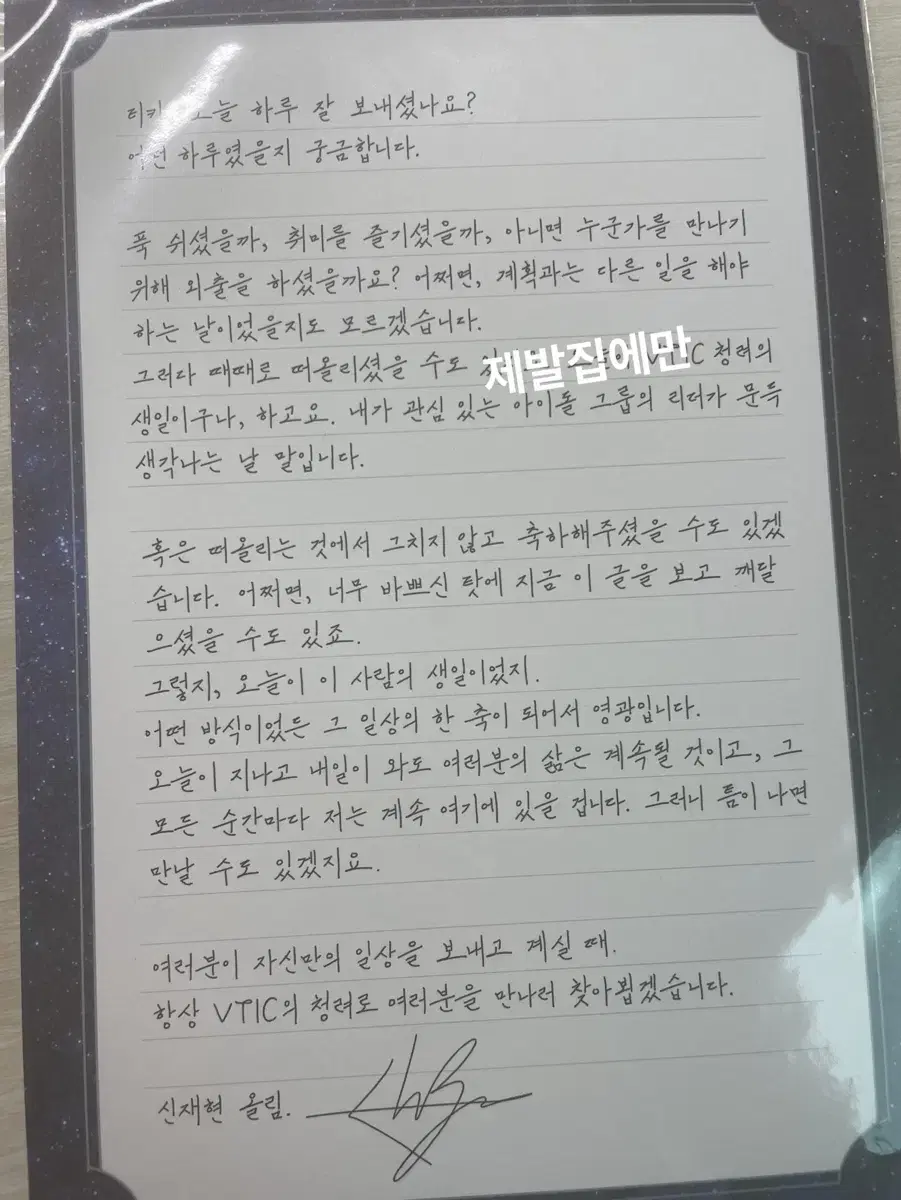 티키 오늘 하루 잘 보내셨나요?
어떤 하루였을지 궁금합니다.
푹 쉬셨을까, 취미를 즐기셨을까, 아니면 누군가를 만나기
위해 외출을 하셨을까요? 어쩌면, 계획과는 다른 일을 해야
하는 날이었을지도 모르겠습니다.
그러다 때때로 떠올리셨을 수도 VTIC 청려의
제발집에만
생일이구나, 하고요. 내가 관심 있는 아이돌 그룹의 리더가 문득
생각나는 날 말입니다.
혹은 떠올리는 것에서 그치지 않고 축하해주셨을 수도 있겠
습니다. 어쩌면, 너무 바쁘신 탓에 지금 이 글을 보고 깨달
으셨을 수도 있죠.
그렇지, 오늘이 이 사람의 생일이었지.
어떤 방식이었든 그 일상의 한 축이 되어서 영광입니다.
오늘이 지나고 내일이 와도 여러분의 삶은 계속될 것이고, 그
모든 순간마다 저는 계속 여기에 있을 겁니다. 그러니 틈이 나면
만날 수도 있겠지요.
여러분이 자신만의 일상을 보내고 계실 때.
항상 VTIC의 청려로 여러분을 만나러 찾아뵙겠습니다.
신재현 올림.